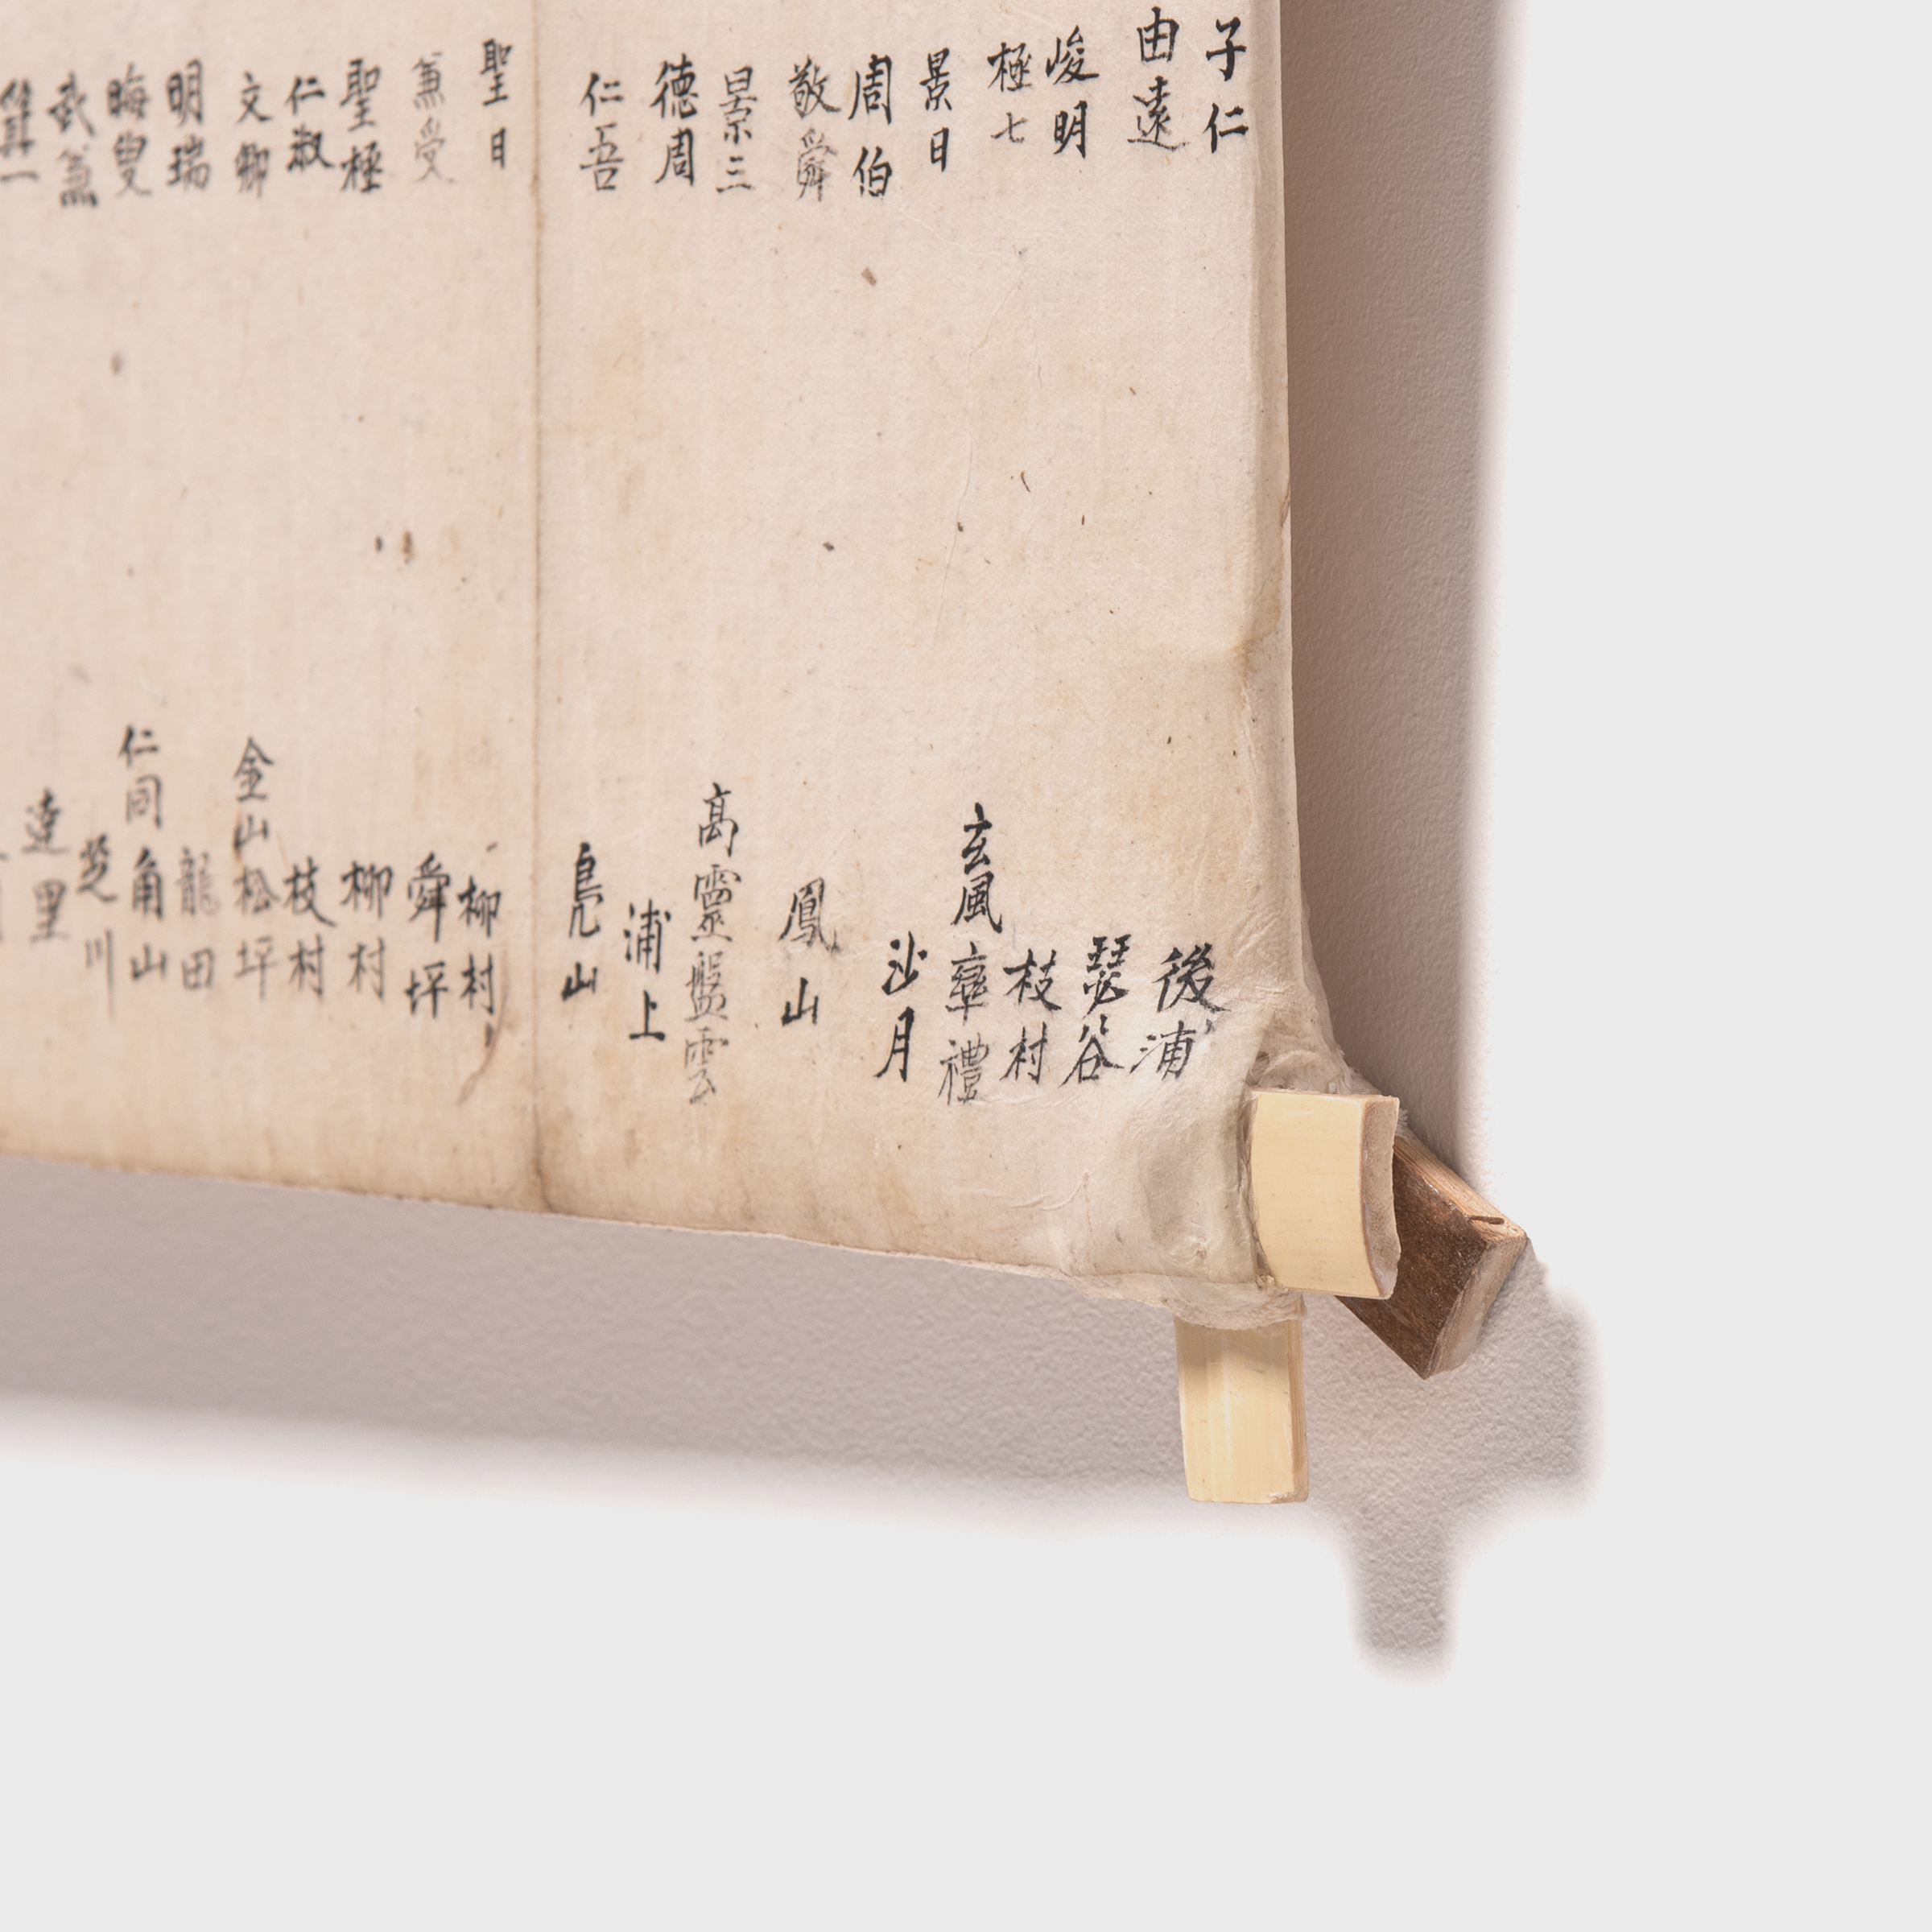 子仁
由遠
峻明
極七
景日
周伯
敬舜
景三
德周
仁吾
聖日
兼受
聖極
仁淑
文卿
明瑞
晦叟
武兼
一
後浦
瑟谷
枝村
玄風 禮
沙月
鳳山
高靈盤雲
浦上
山
柳村
舜坪
柳村
枝村
金山松坪
龍田
仁同角山
芝川
達里